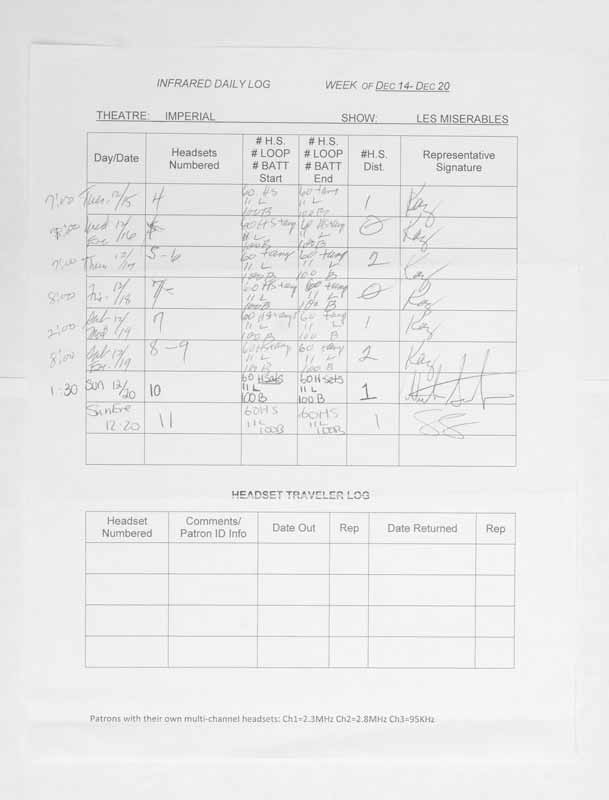 INFRARED DAILY LOG WEEK OF DEC 14- DEC 20
THEATRE: IMPERIAL SHOW: LES MISERABLES
Day/Date Headsets Numbered # H.S. # LOOP # BATT Start # H.S. # LOOP # BATT End #H.S. Dist. Representative Signature
7:00 Tues. 12/15 4 60 HS 11 L 100B 60 11 L 100B 1 Kay
Wed 12/16 60 11 L 100B 60 11 L 100B 0 Kay
7:00 Thurs. 12/17 5-6 60 11 L 100B 60 11 L 100 B 2 Kay
8:00 Fri. 12/18 60 HS 11 L 100B 60 11 L 100 B 0 Kay
2:00 Sat 12/19 7 60 HS 11 L 100B 60 11 L 100 B 1 Kay
8:00 Sat 12/19 8-9 60 HS 11 L 100 B 60 11 L 100 B 2 Kay
1:30 Sun 12/20 10 60 Hsets 11 L 100B 60 Hsets 11 L 100 B 1
Sun Eve 12.20 11 60HS 11L 100B 60HS 11L 100B 1 SS
HEADSET TRAVELER LOG
Headset Numbered Comments/ Patron ID Info Date Out Rep Date Returned Rep
Patrons with their own multi-channel headsets: Ch1=2.3MHz Ch2=2.8MHz Ch3=95KHz